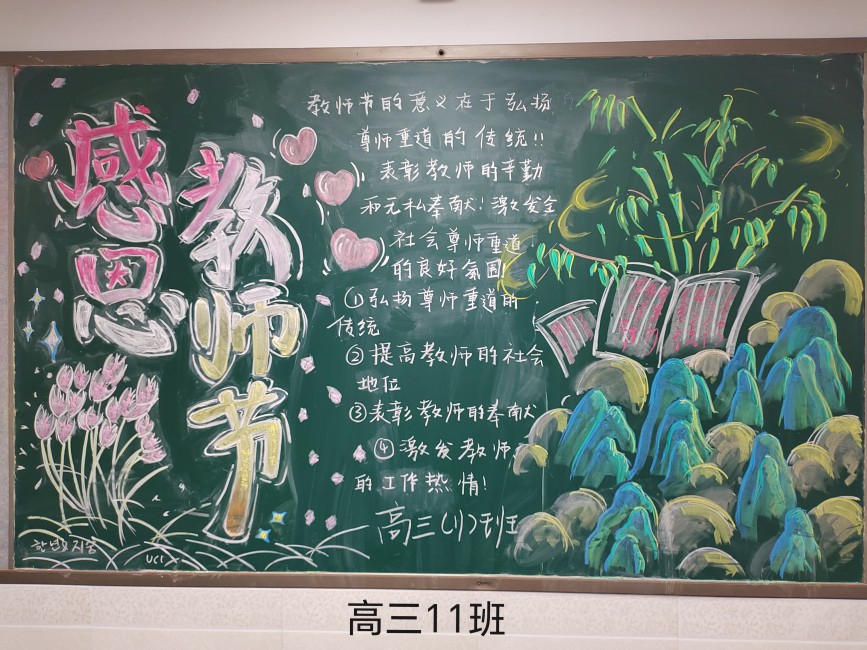 感恩
教师节
教师节的意义在于弘扬
尊师重道的传统!!
表彰教师的辛勤
和无私奉献!激发全
社会尊师重道
的良好氛围!
①弘扬尊师重道的
传统
②提高教师的社会
地位
③表彰教师的奉献
④激发教师
的工作热情!
高三(11)班
高三11班